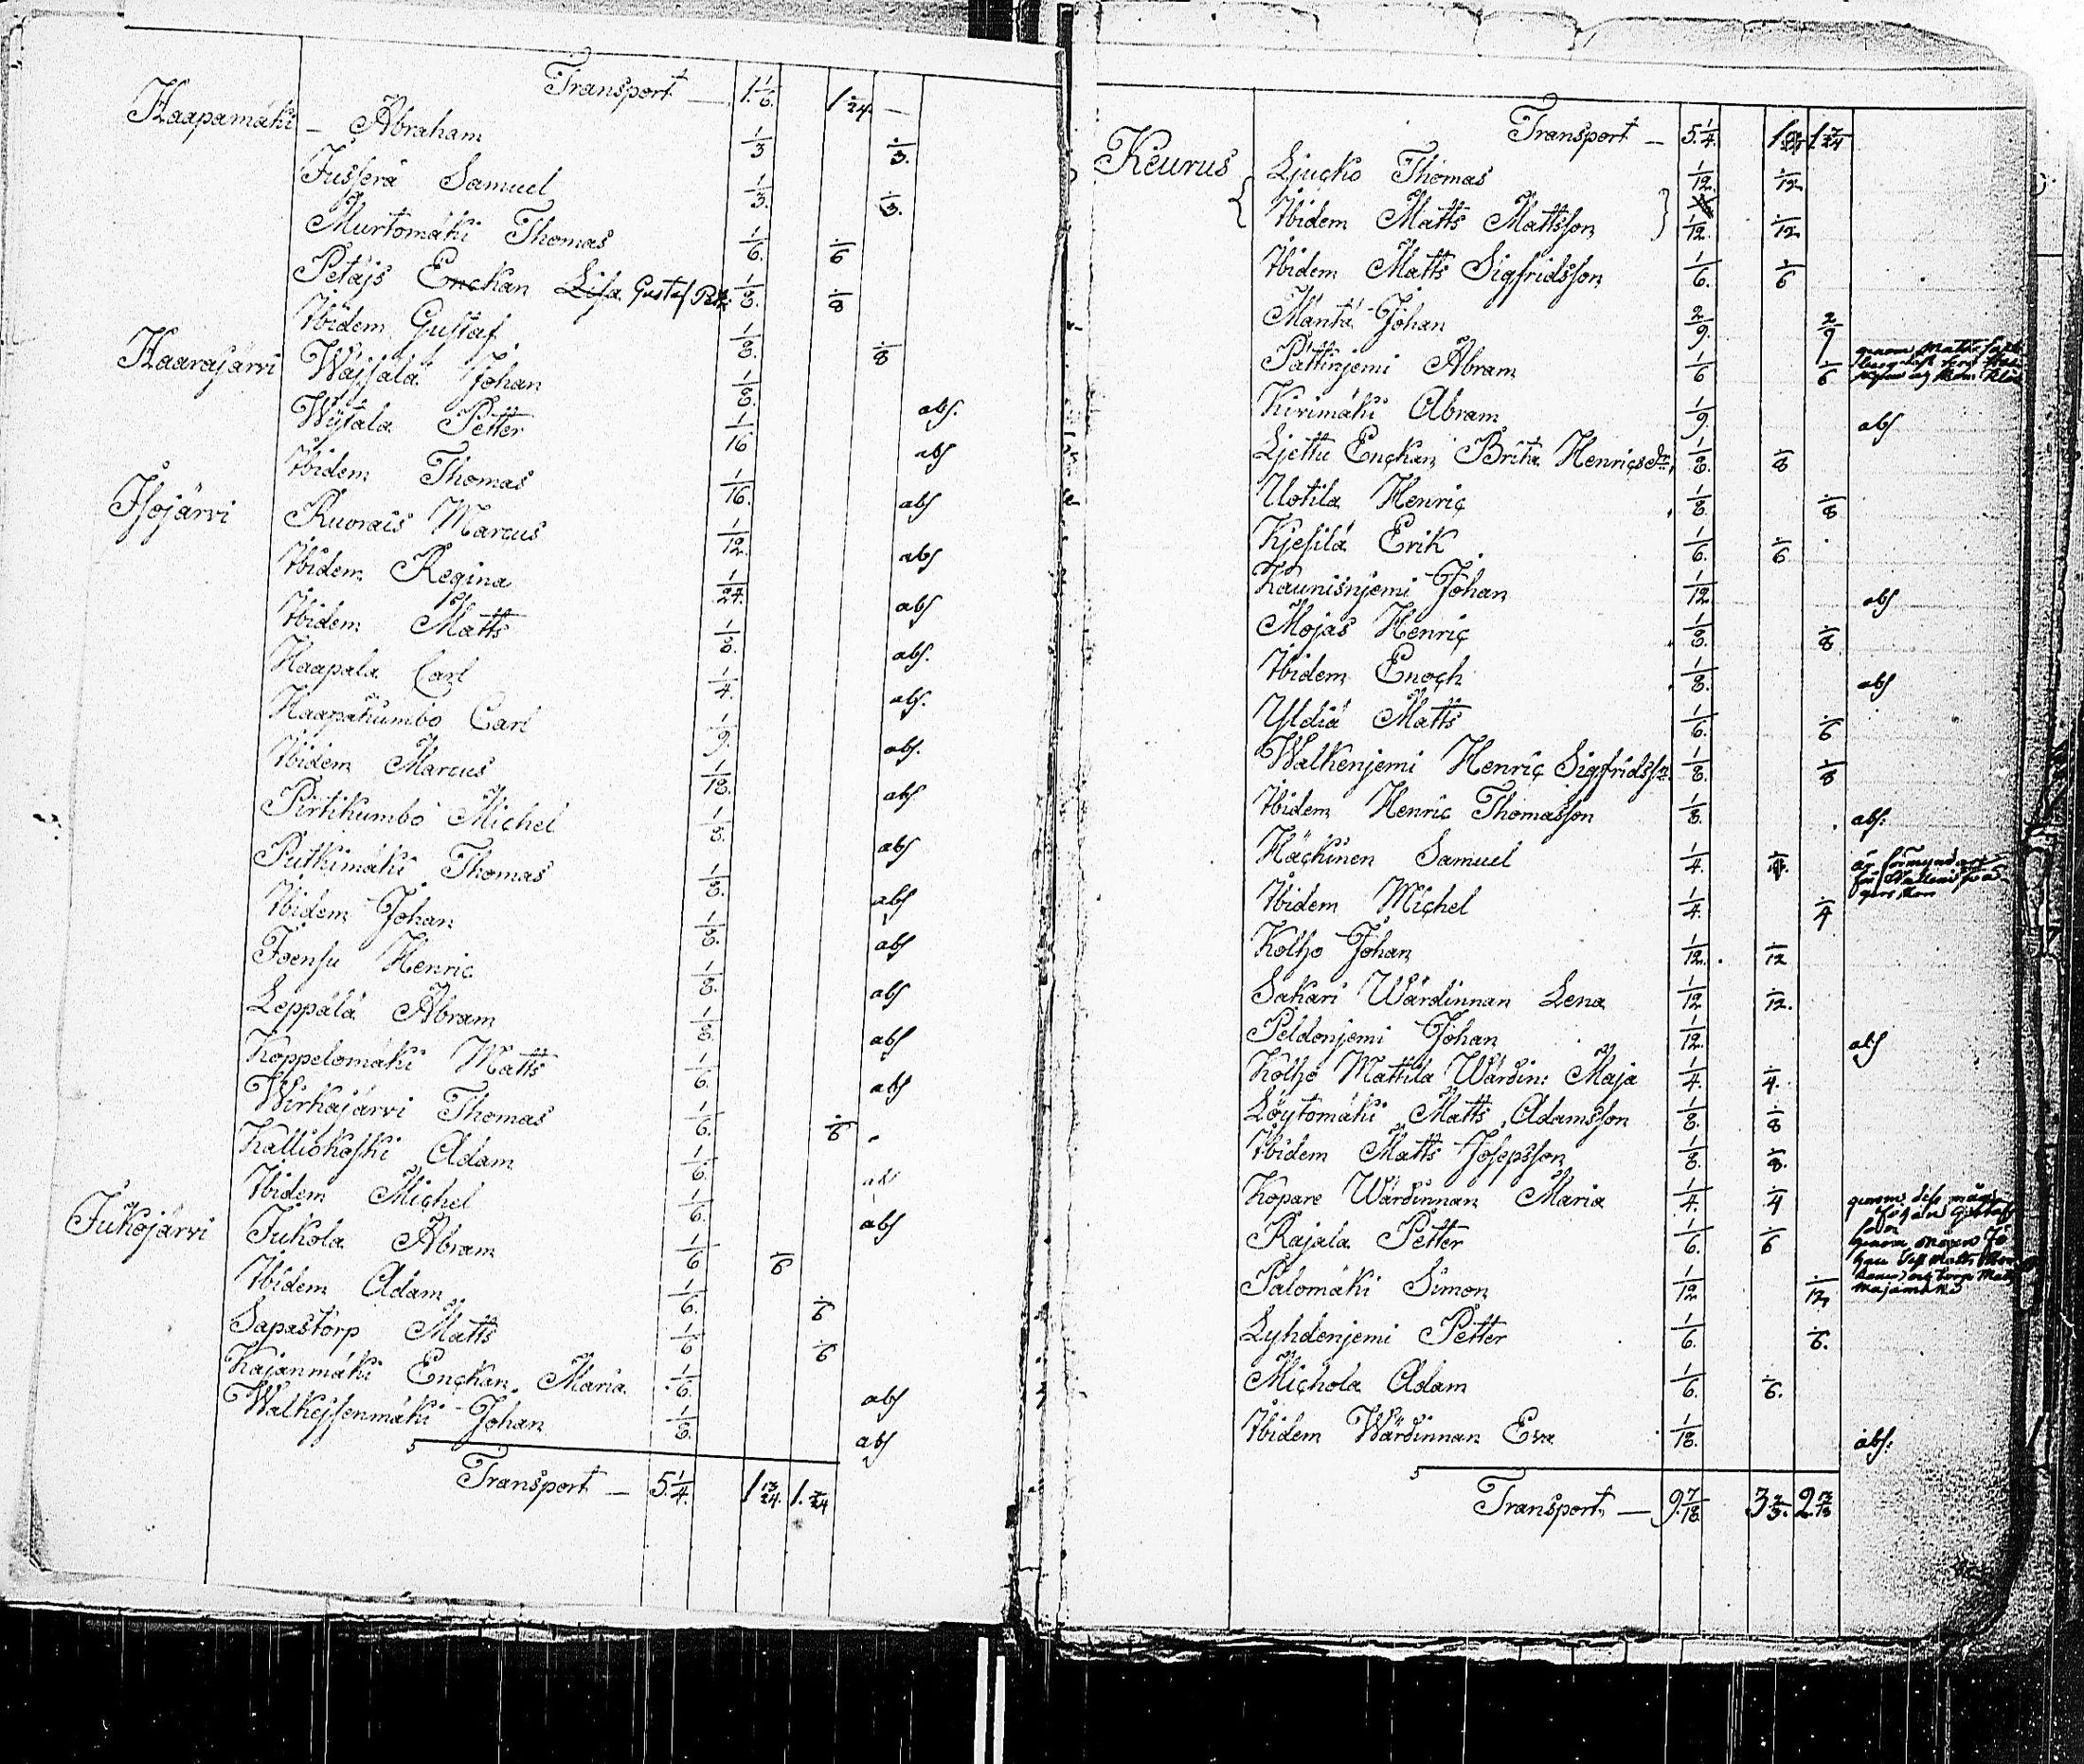 Transport — 1 1/6. 1 1/24. —
Haapamäki — Abraham 1/3 1/3.
Jusserä Samuel 1/3. 1/3.
Murtomäki Thomas 1/6. 1/6
Petäjs Enckan Lisa Gustaf 1/8. 1/8
Ibidem Gustaf 1/8. 1/8
Haarajärvi Wäjsälä Johan 1/8. abs.
Wijtala Petter 1/16 abs
Ibidem Thomas 1/16. abs
Isojärvi Ruorais Marcus 1/12. abs
Ibidem Regina 1/24. abs
Ibidem Matts 1/8. abs.
Haapala Carl 1/4. abs.
Haapakumbo Carl 1/9. abs.
Ibidem Marcus 1/18. abs
Pirtikumbo Michel 1/8. abs
Putkimäki Thomas 1/8. abs
Ibidem Johan 1/8. abs
Joensu Henric 1/8. abs
Leppälä Abram 1/8. abs
Koppelomäki Matts 1/6. abs
Wirkajärvi Thomas 1/6. 1/6
Kalliokoski Adam 1/6. abs
Ibidem Michel 1/6. abs
Jukojärvi Jukola Abram 1/6 1/6
Ibidem Adam 1/6. 1/6
Sapastorp Matts 1/6 1/6
Kajanmäki Enckan Maria 1/6. abs
Walkejsenmäki Johan 1/6. abs
Transport — 5 1/4. 1 13/24. 1. 7/24
Transport — 5 1/4. 1 7/24
Keurus Ljucko Thomas 1/12. 1/12
Ibidem Matts Mattsson 1/12. 1/12
Ibidem Matts Sigfridsson 1/6. 1/6
Mäntä Johan 2/9. 2/9
Pättinjemi Abram 1/6 1/6 genom
Kivimäki Abram 1/9. abs
Ljettu Enckan Brita Henricsdr 1/8. 1/8
Uotila Henric 1/8. 1/8
Kjesilä Erik 1/6. 1/6
Kaunisnjemi Johan 1/12. abs
Mojas Henric 1/8. 1/8
Ibidem Enoch 1/8. abs
Yldiä Matts 1/6. 1/6
Walkenjemi Henric Sigfridssn 1/8. 1/8
Ibidem Henric Thomasson 1/8. abs:
Häckinen Samuel 1/4. 1/4. är förmyndare
Ibidem Michel 1/4. 1/4
Kolho Johan 1/12. 1/12
Sakari Wärdinnan Lena 1/12 1/12.
Peldonjemi Johan 1/12. abs
Kolho Mattila Wärdin: Maja 1/4. 1/4.
Löytomäki Matts Adamsson 1/8. 1/8
Ibidem Matts Josepsson 1/8. 1/8.
Kopare Wärdinnan Maria 1/4. 1/4 genom dess måg
Johan Gustafs
son
Rajala Petter 1/6. 1/6 genom
Palomäki Simon 1/12 1/12
Lyhdenjemi Petter 1/6. 1/6.
Michola Adam 1/6. 1/6.
Ibidem Wärdinnan Eva 1/18. abs:
Transport — 9 7/18. 3 2/3. 2